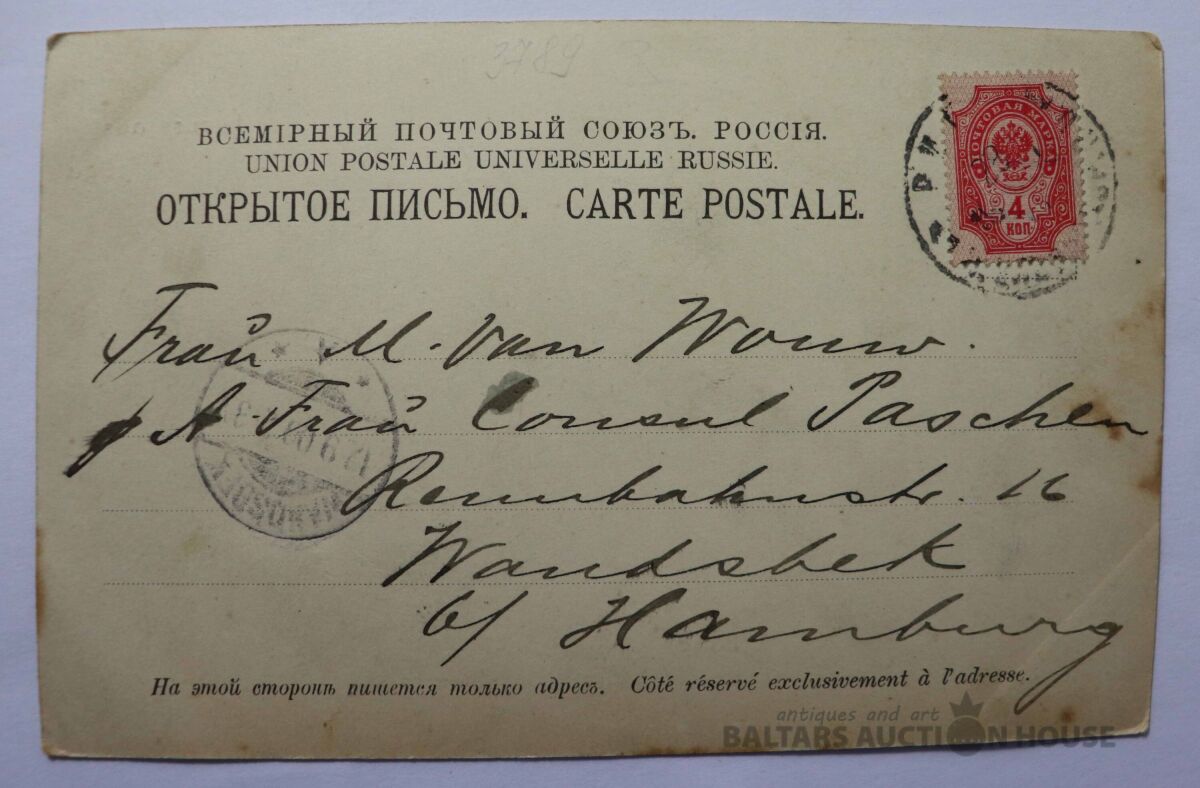 3789
ВСЕМІРНЫЙ ПОЧТОВЫЙ СОЮЗЪ. РОССІЯ.
UNION POSTALE UNIVERSELLE RUSSIE.
ОТКРЫТОЕ ПИСЬМО. CARTE POSTALE.
ПОЧТОВАЯ МАРКА
4
КОП.
Frau M. Van Wouw.
p A. Frau Consul Paschen
Rennbahnstr. 16
Wandsbek
b/ Hamburg
На этой сторонѣ пишется только адресъ. Côté réservé exclusivement à l'adresse.
antiques and art
BALTARS AUCTION HOUSE